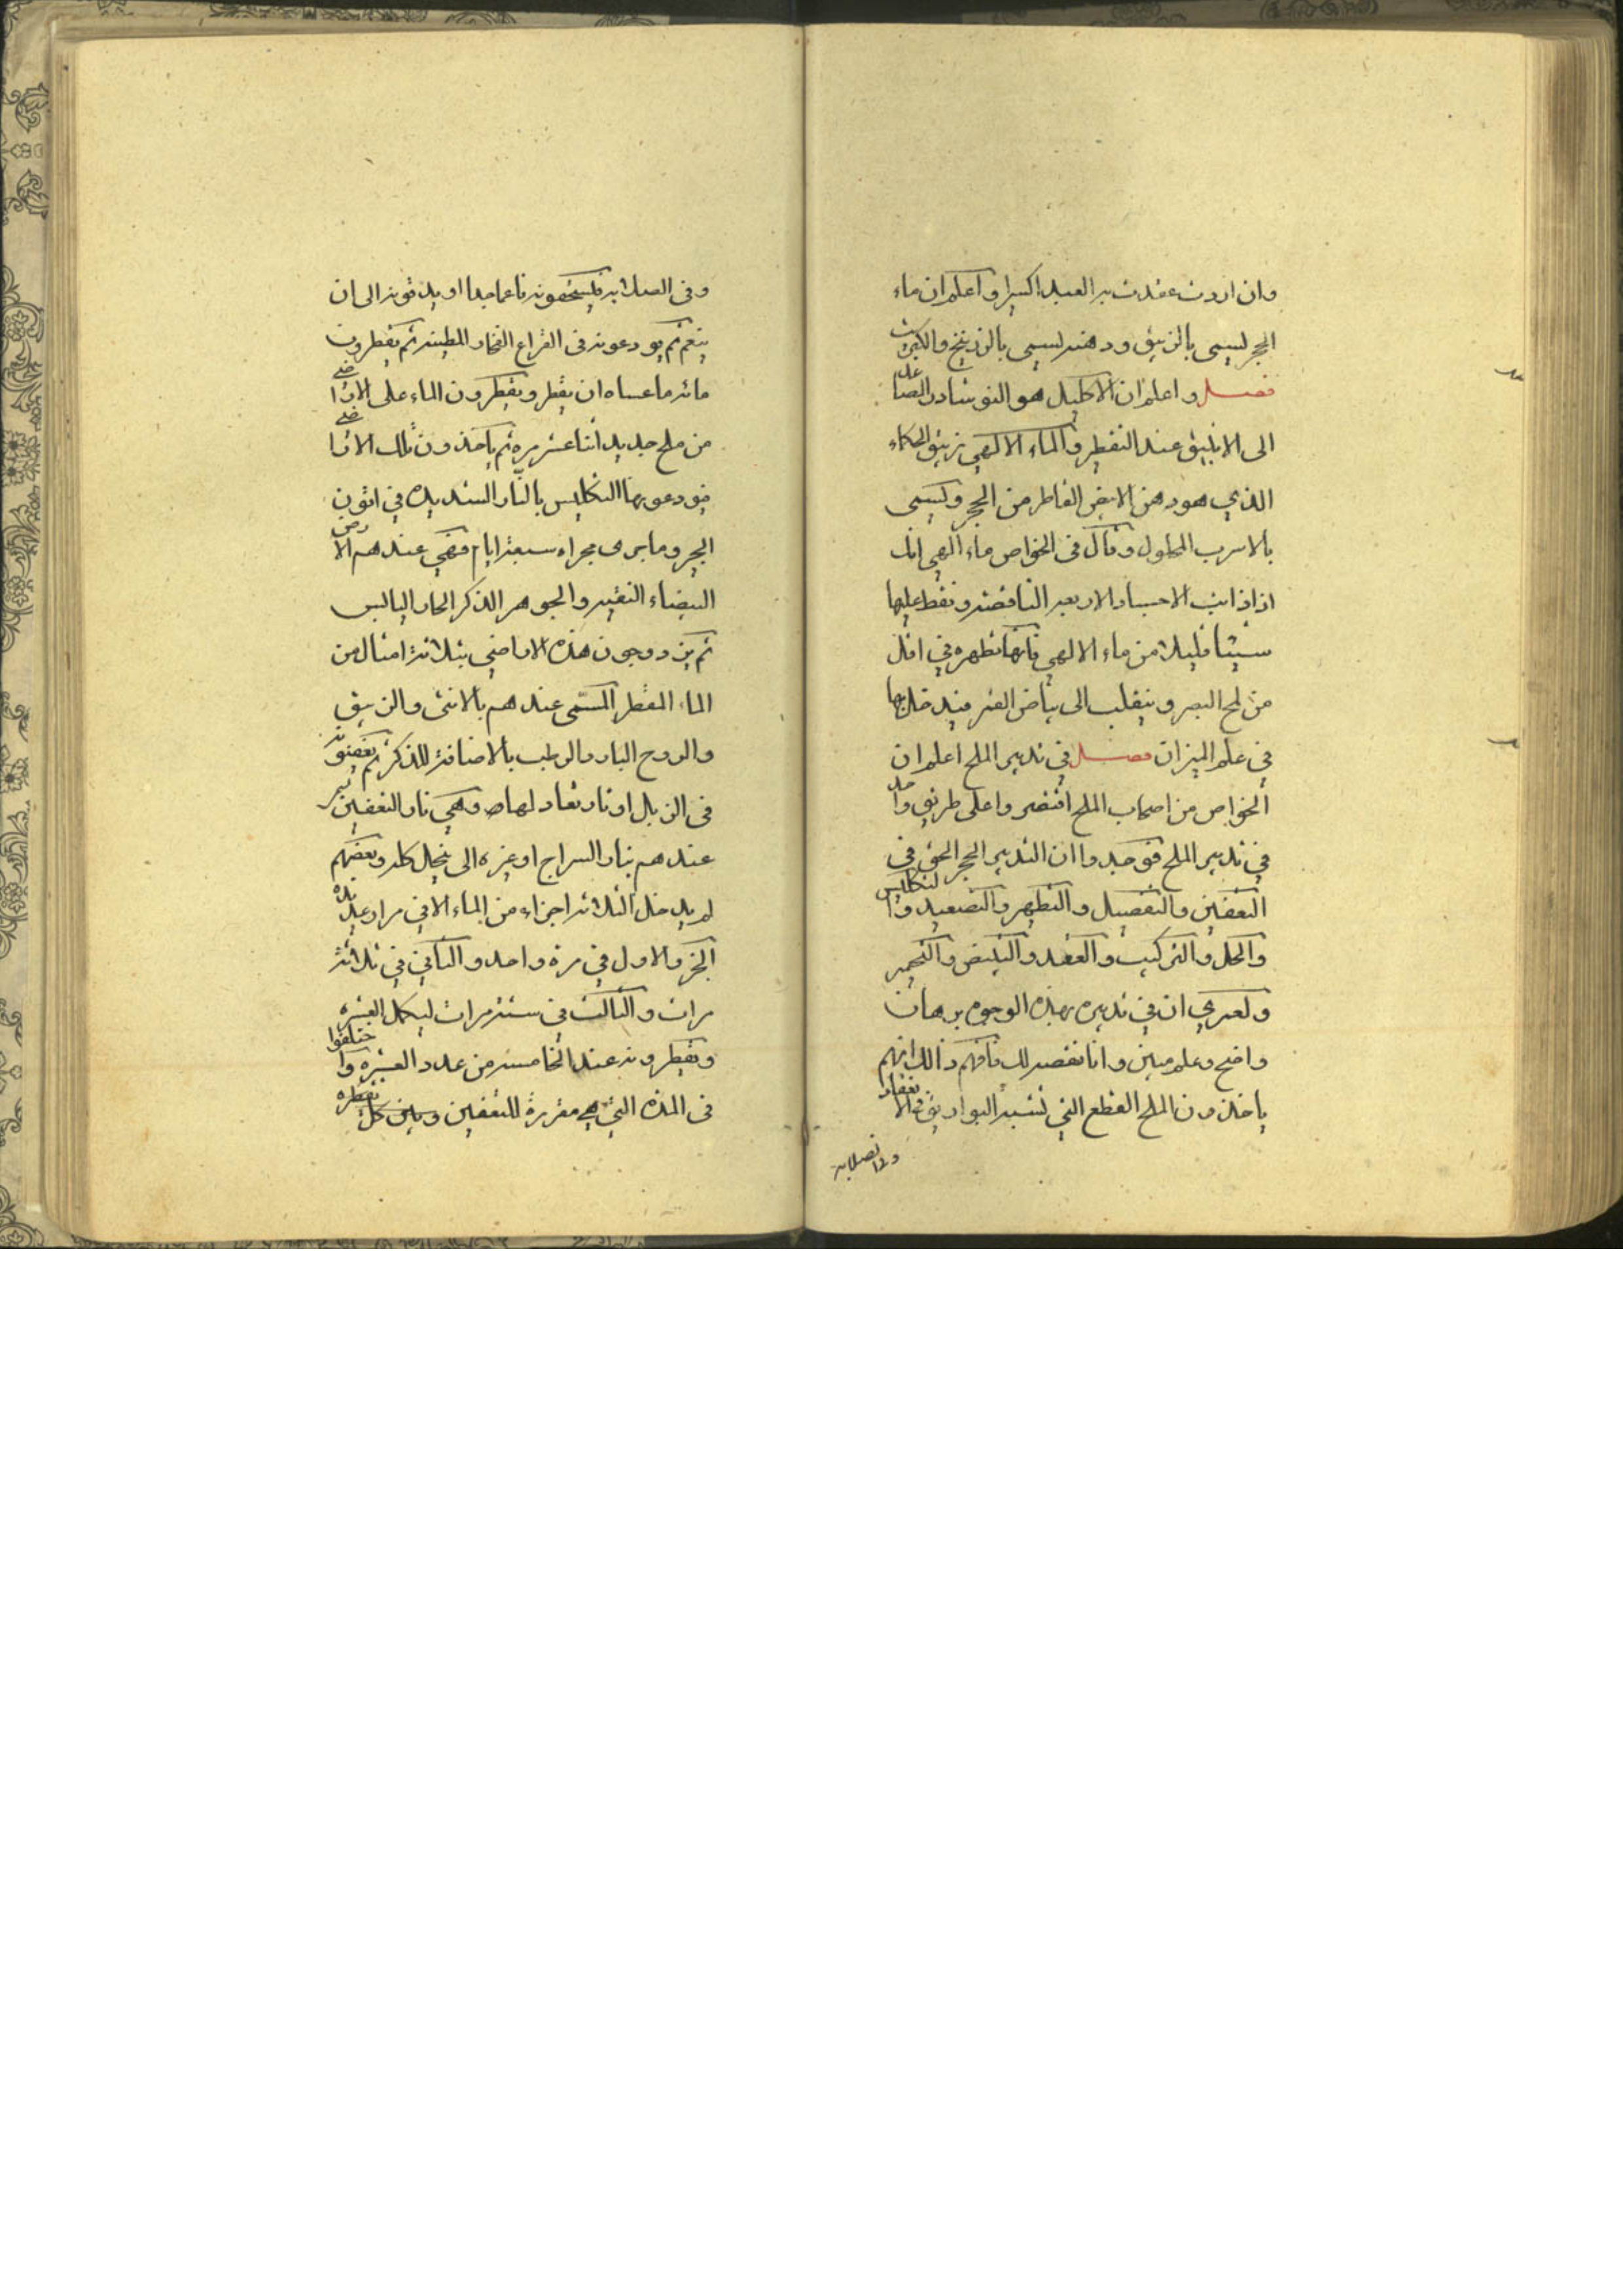 وان اردت عقدت به العبد اكسيرا واعلم ان ماء
الحجر يسمى بالزيبق ودهنه يسمى بالزرنيخ والكبريت
فصل واعلم ان الاكليل هو النوشادر الصاعد
الى الانبيق عند التقطير والماء الالهي زيبق الحكماء
الذي هو دهن الابيض القاطر من الحجر ويسمى
بالاسرب المحلول وقال في الخواص ماء الهي انك
اذا اذابت الاجساد الاربعه الناقصة وتقط عليها
شيئا قليلا من ماء الالهي فانها تطهره في اقل
من لمح البصر وينقلب الى بياض القمر فيدخل بها
في علم الميزان فصل في تدبير الملح اعلم ان
الخواص من اصحاب الملح اقتصروا على طريق واحد
في تدبير الملح فوجدوا ان التدبير الحجر الحق في
التعفين والتفصيل والتطهير والتصعيد والتكليس
والحل والتركيب والعقد والتبييض والتحمير
ولعمري ان في تدبيره بهذه الوجوه برهان
واضح وعلم مبين وانا نقصه لك فافهم ذالك انهم
ياخذون الملح القطع التي تشبه البواريق
وفي الصلايه
وفي الصلايه فيسحقونه ناعما جدا او يدقونه الى ان
ينعم ثم يودعونه في القراع الفخار المطينه ثم يقطرون
مائه ما عساه ان يقطر ويقطرون الماء على الاراضي
من ملح جديد اثنا عشر مره ثم ياخذون تلك الاراضي
فيودعونها التكليس بالنار الشديده في اتون
الجير وما يرى مجراه سبعة ايام فهي عندهم الارض
البيضاء النقيه والجوهر الذكر الحار اليابس
ثم يزدوجون هذه الاراضي بثلاثة امثال من
الماء المقطر المسمى عندهم بالانثى والزيبق
والروح البارد الرطب بالاضافة للذكر ثم يعفنونه
في الزبل او نار تعادلها وهي نار التعفين
عندهم بنار السراج او غيره الى ينحل كله وبعضهم
لم يدخل الثلاثه اجزاء من الماء الا في مرار عديده
الجزو الاول في مرة واحد والثاني في ثلاثة
مرات والثالث في ستة مرات ليكمل العشره
ويقطرونه عند الخامسه من عدد العشره واختلفوا
في المدة التي هي مقررة للتعفين وبين كل تقطره